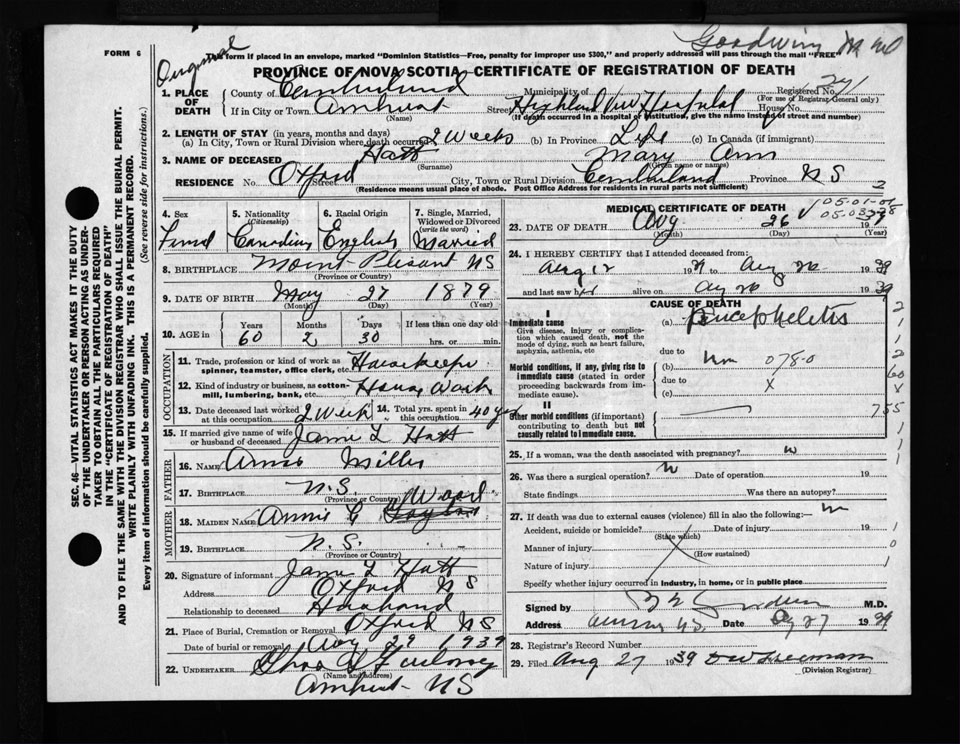 Original
Goodwin
FORM 6
This form if placed in an envelope, marked "Dominion Statistics—Free, penalty for improper use $300," and properly addressed will pass through the mail "FREE"
PROVINCE OF NOVA SCOTIA, CERTIFICATE OF REGISTRATION OF DEATH
1. PLACE OF DEATH County of Cumberland Municipality of Registered No. 241
(For use of Registrar-General only)
If in City or Town Amherst (Name) Street Highland View Hospital House No.
(If death occurred in a hospital or institution, give the name instead of street and number)
2. LENGTH OF STAY (in years, months and days)
(a) In City, Town or Rural Division where death occurred 2 Weeks (b) In Province Life (c) In Canada (if immigrant)
3. NAME OF DECEASED Hatt (Surname) Mary Ann (Given name or names)
RESIDENCE No. Street Oxford City, Town or Rural Division Cumberland Province N S
(Residence means usual place of abode. Post Office Address for residents in rural parts not sufficient)
4. Sex
5. Nationality (Citizenship) Canadian
6. Racial Origin English
7. Single, Married, Widowed or Divorced (write the word) Married
8. BIRTHPLACE Mount Plesant NS
(Province or Country)
9. DATE OF BIRTH May 27 1879
(Month) (Day) (Year)
10. AGE in Years 60 Months 2 Days 30 If less than one day old hrs. or min.
OCCUPATION
11. Trade, profession or kind of work as spinner, teamster, office clerk, etc. Housekeeper
12. Kind of industry or business, as cotton-mill, lumbering, bank, etc. House Work
13. Date deceased last worked at this occupation 2 Week 14. Total yrs. spent in this occupation 40 yrs
15. If married give name of wife or husband of deceased Jame L Hatt
FATHER
16. NAME Amos Miller
17. BIRTHPLACE N.S.
(Province or Country)
MOTHER
18. MAIDEN NAME Annie C Wood
19. BIRTHPLACE N.S.
(Province or Country)
20. Signature of informant Jame L Hatt
Address Oxford N S
Relationship to deceased Husband
21. Place of Burial, Cremation or Removal Oxford NS
Date of burial or removal Aug 29 1939
22. UNDERTAKER Chas A Furlong
(Name and address)
Amherst NS
MEDICAL CERTIFICATE OF DEATH
05-01-01
23. DATE OF DEATH Aug 26 19 39
(Month) (Day) (Year)
24. I HEREBY CERTIFY that I attended deceased from:
Aug 12 1939 to Aug 26 1939
and last saw her alive on Aug 26 1939
CAUSE OF DEATH
I
Immediate cause
Give disease, injury or complication which caused death, not the mode of dying, such as heart failure, asphyxia, asthenia, etc
(a) Encephelitis
due to
Morbid conditions, if any, giving rise to immediate cause (stated in order proceeding backwards from immediate cause).
(b) 078-0
due to X
(c)
II
Other morbid conditions (if important) contributing to death but not causally related to immediate cause.
755
25. If a woman, was the death associated with pregnancy?
26. Was there a surgical operation? Date of operation 19
State findings Was there an autopsy?
27. If death was due to external causes (violence) fill in also the following:—
Accident, suicide or homicide? Date of injury 19
(State which)
Manner of injury
(How sustained)
Nature of injury
Specify whether injury occurred in Industry, in home, or in public place
Signed by M.D.
Address Date Aug 27 1939
28. Registrar's Record Number
29. Filed Aug 27 1939 Freeman
(Division Registrar)
SEC. 46—VITAL STATISTICS ACT MAKES IT THE DUTY OF THE UNDERTAKER OR PERSON ACTING AS UNDERTAKER TO OBTAIN ALL THE PARTICULARS REQUIRED IN THE "CERTIFICATE OF REGISTRATION OF DEATH" AND TO FILE THE SAME WITH THE DIVISION REGISTRAR WHO SHALL ISSUE THE BURIAL PERMIT.
WRITE PLAINLY WITH UNFADING INK. THIS IS A PERMANENT RECORD.
Every item of information should be carefully supplied. (See reverse side for instructions.)